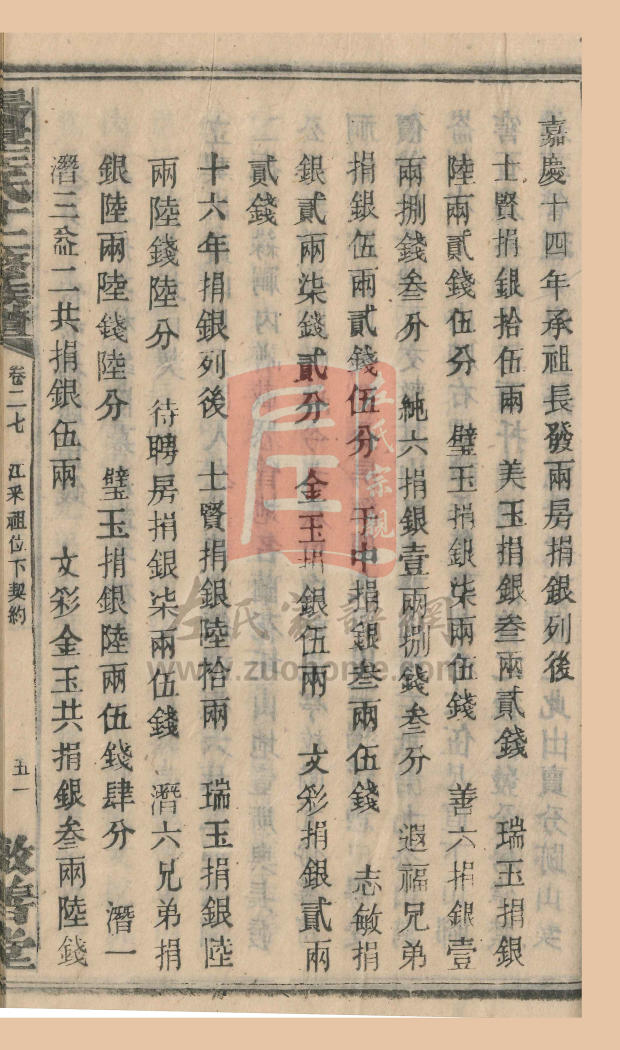 嘉慶十四年承祖長發兩房捐銀列後
士賢捐銀拾伍兩　美玉捐銀叄兩貳錢　瑞玉捐銀
陸兩貳錢伍分　璧玉捐銀柒兩伍錢　善六捐銀壹
兩捌錢叄分　純六捐銀壹兩捌錢叄分　遐福兄弟
捐銀伍兩貳錢伍分　于中捐銀叄兩伍錢　志敏捐
銀貳兩柒錢貳分　金玉捐銀伍兩　文彩捐銀貳兩
貳錢
十六年捐銀列後　士賢捐銀陸拾兩　瑞玉捐銀陸
兩陸錢陸分　待聘房捐銀柒兩伍錢　潛六兄弟捐
銀陸兩陸錢陸分　璧玉捐銀陸兩伍錢肆分　潛一
潛三益二共捐銀伍兩　文彩金玉共捐銀叄兩陸錢
左氏十二修族譜
卷二七　江采祖位下契約　五一
敦善堂
左氏宗親
左氏家譜網
www.zuohome.com